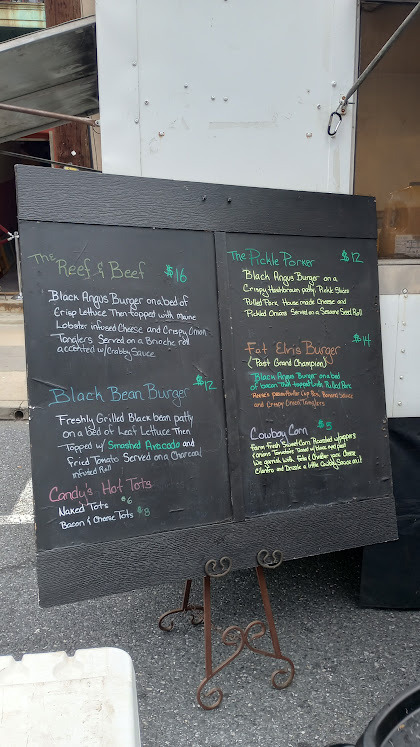 The Reef & Beef $16
Black Angus Burger on a bed of
Crisp Lettuce Then topped with maine
Lobster infused Cheese and Crispy Onion
Tanglers Served on a Brioche roll
accented w/Crabby Sauce
Black Bean Burger $12
Freshly Grilled Black bean patty
on a bed of Leaf Lettuce Then
Topped w/ Smashed Avocado and
fried Tomato Served on a Charcoal
infused Roll
Candy's Hot Tots
Naked Tots $6
Bacon & Cheese Tots $8
The Pickle Porker $12
Black Angus Burger on a
Crispy Hashbrown patty, Pickle Slices
Pulled Pork House made Cheese and
Pickled Onions Served on a Sesame Seed Roll
Fat Elvis Burger $14
(Past Grand Champion)
Black Angus Burger on a bed
of bacon Then topped with Pulled Pork
Reese's peanut butter Cup Bits, Banana Sauce
and Crispy Onion Tanglers
Cowboy Corn $5
Farm fresh Sweet Corn Roasted w/peppers
Onions Tomatoes
We garnish with Feta & Cheese
Cilantro and Drizzle a little Cowboy Sauce on it